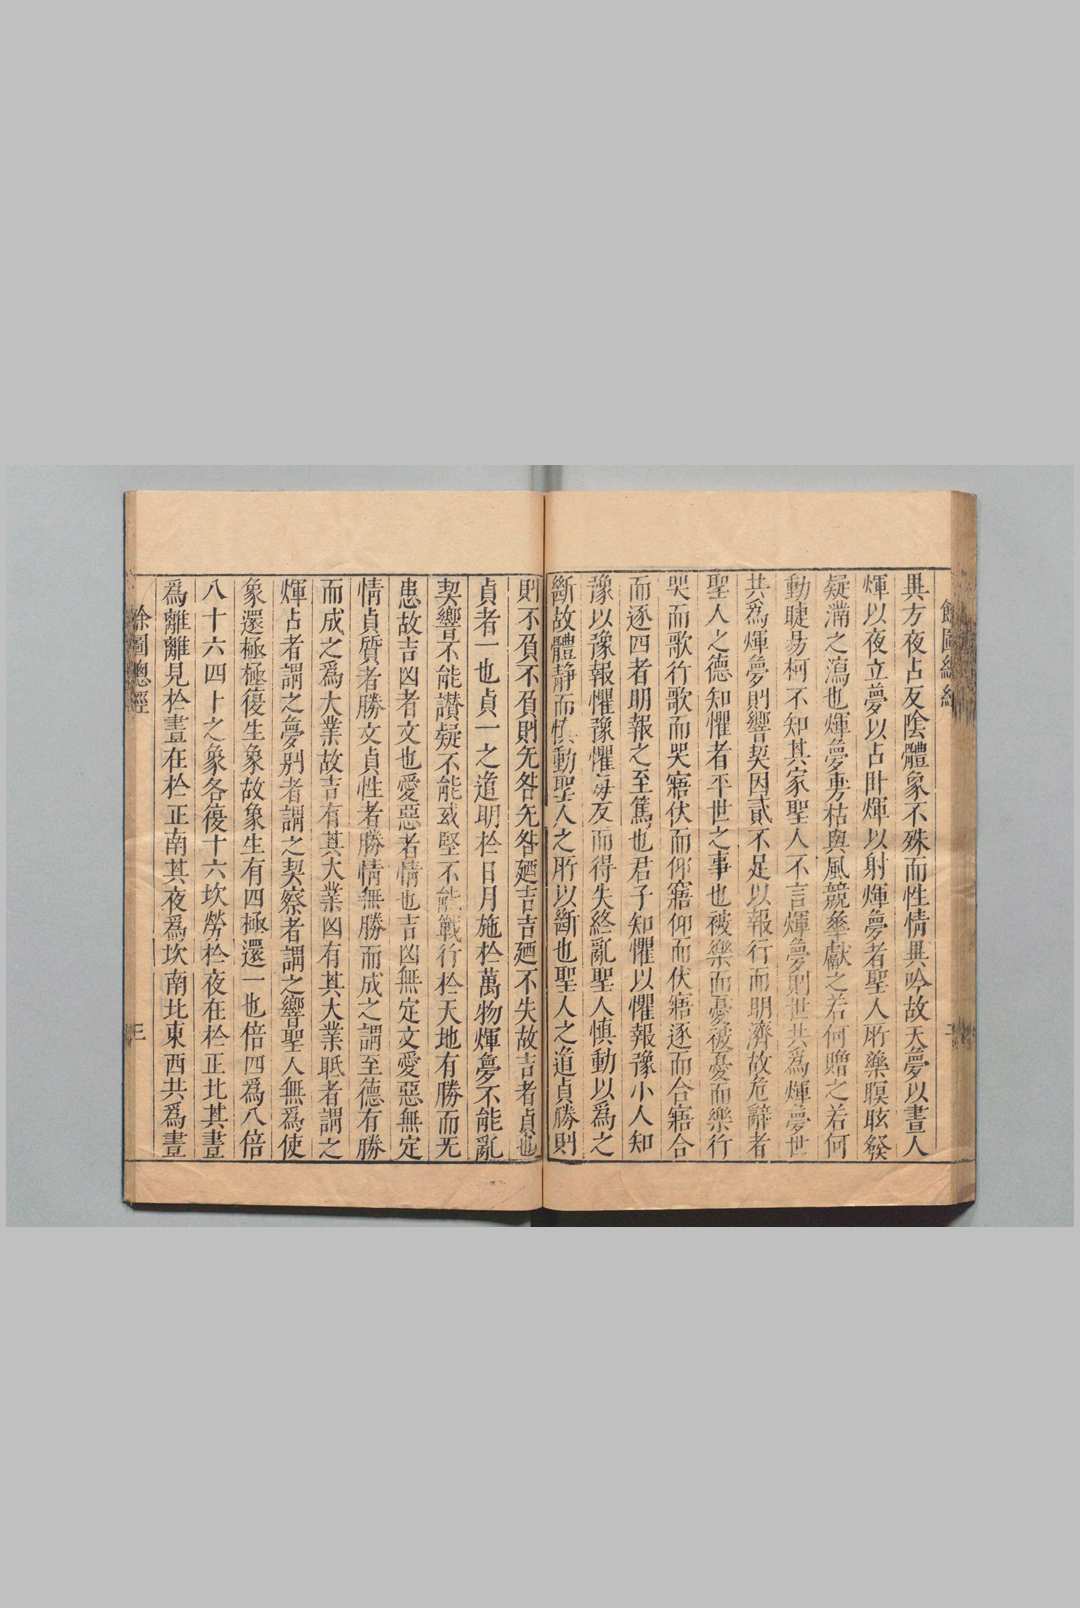 異方夜占反陰體象不殊而性情異吟故天夢以晝人
煇以夜立夢以占卧煇以射煇夢者聖人所藥瞑眩發
疑潲之瀉也煇夢夷枯與風競擧獻之若何贈之若何
動睫昜柯不知其家聖人不言煇夢則世共為煇夢世
共為煇夢則響契因貳不足以報行而明濟故危辭者
聖人之德知懼者平世之事也被樂而憂被憂而樂行
哭而歌行歌而哭寤伏而仰寤仰而伏寤逐而合寤合
而逐四者明報之至篤也君子知懼以懼報豫小人知
豫以豫報懼豫懼每反而得失終亂聖人慎動以為之
斷故體靜而慎動聖人之所以斷也聖人之道貞勝則
則不負不負則无咎无咎廼吉吉廼不失故吉者貞也
貞者一也貞一之道明於日月施於萬物煇夢不能亂
契響不能讃疑不能惑堅不能戰行於天地有勝而无
患故吉凶者文也愛惡者情也吉凶無定文愛惡無定
情貞質者勝文貞性者勝情無勝而成之謂至德有勝
而成之爲大業故吉有其大業凶有其大業眡者謂之
煇占者謂之夢別者謂之契察者謂之響聖人無爲使
象還極極復生象故象生有四極還一也倍四爲八倍
八十六四十之象各復十六坎勞於夜在於正北其晝
爲離離見於晝在於正南其夜爲坎南北東西共爲晝
餘圖總經
三